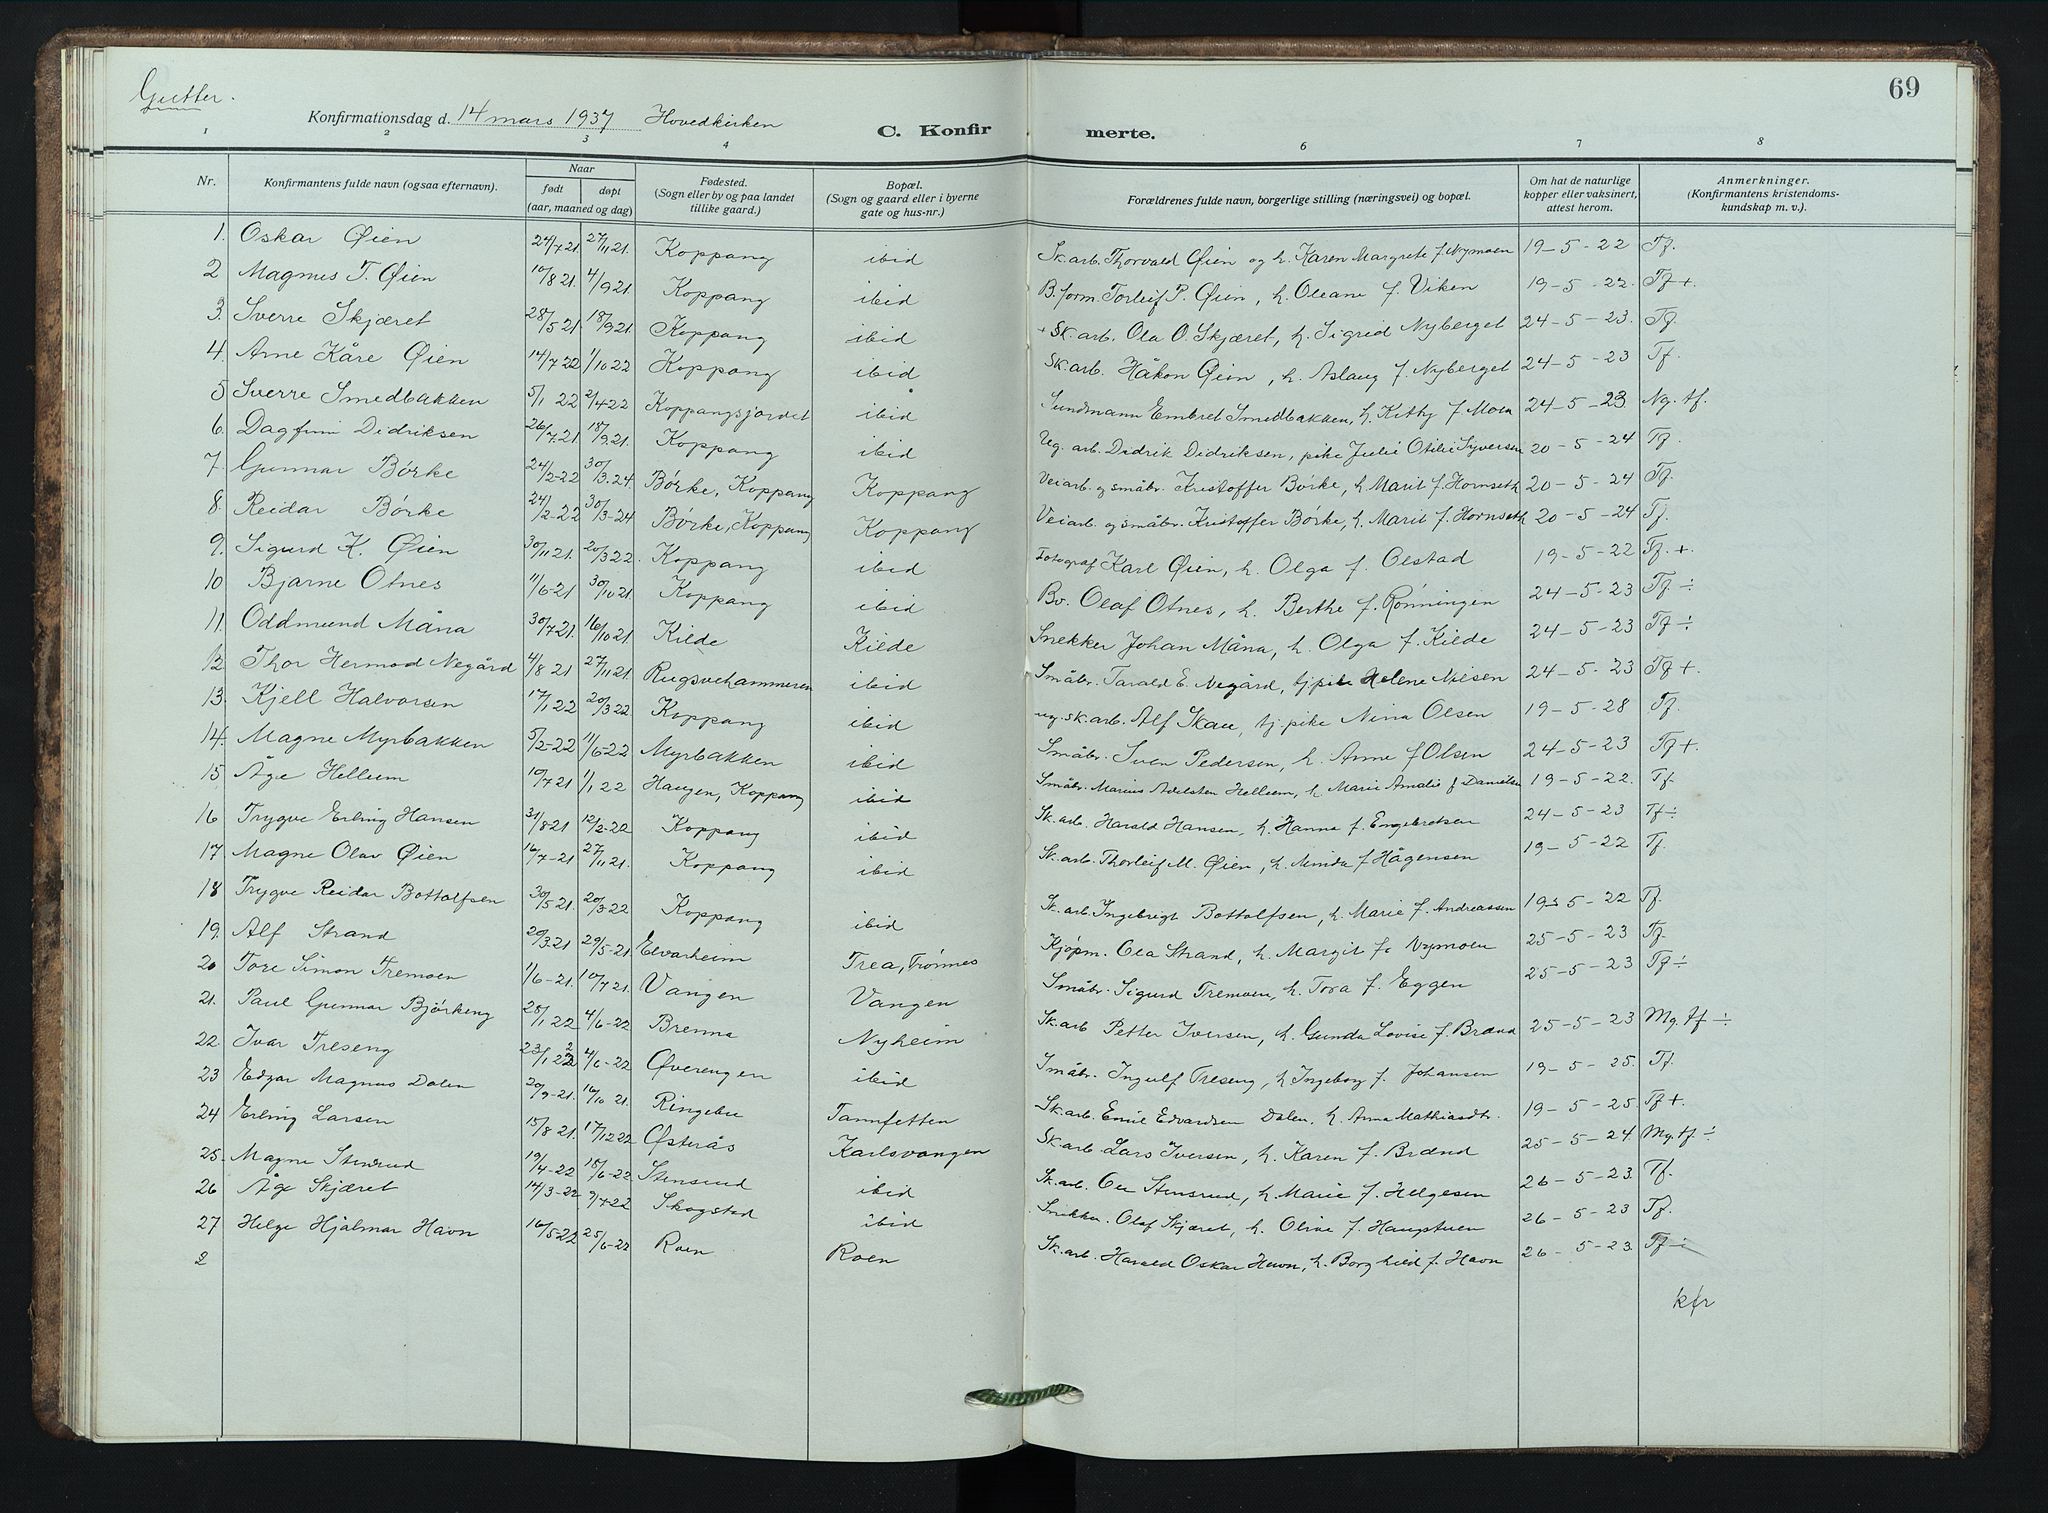 69
Gutter.
Konfirmationsdag d. 14 mars 1937 Hovedkirken
C. Konfirmerte.
1 2 3 4 6 7 8
Nr. Konfirmantens fulde navn (ogsaa efternavn). Naar født døpt (aar, maaned og dag) Fødested. (Sogn eller by og paa landet tillike gaard.) Bopæl. (Sogn og gaard eller i byerne gate og hus-nr.) Forældrenes fulde navn, borgerlige stilling (næringsvei) og bopæl. Om hat de naturlige kopper eller vaksinert, attest herom. Anmerkninger. (Konfirmantens kristendoms-kundskap m. v.).
1. Oskar Øien 24/7 21 27/11 21. Koppang ibid Sk.arb. Thorvald Øien og h. Karen Margrete f. Nymoen 19-5-22 Tf.
2 Magnus T. Øien 10/8 21. 4/9 21. Koppang ibid B.form. Torleif P. Øien, h. Oleane f. Viken 19-5-22. Tf +.
3. Sverre Skjæret 28/5 21 18/9 21. Koppang ibid Sk.arb. Ola O. Skjæret, h. Sigrid Nyberget 24-5-23. Tf.
4. Arne Kåre Øien 14/7 22 1/10 22 Koppang ibid Sk.arb. Håkon Øien, h. Aslaug f. Nyberget 24-5-23 Tf.
5 Sverre Smedbakken 5/1 22 2/4 22 Koppangsjordet ibid Sundmann Embret Smedbakken, h. Kithy f. Moen 24-5-23. Ng. tf.
6. Dagfinn Didriksen 26/7 21. 18/9 21. Koppang ibid Ug. arb. Didrik Didriksen, pike Julie Otilie Syversen 20-5-24 Tf.
7. Gunnar Børke 24/2-22 30/3-24. Børke, Koppang Koppang Veiarb. og småbr. Kristoffer Børke, h. Marit f. Hornseth 20-5-24 Tf.
8. Reidar Børke 24/2-22 30/3-24 Børke, Koppang Koppang Veiarb. og småbr. Kristoffer Børke, h. Marit f. Hornseth 20-5-24 Tf.
9. Sigurd K. Øien 30/11 21. 20/3 22. Koppang ibid Fotograf Karl Øien, h. Olga f. Olstad 19-5-22 Tf. +
10 Bjarne Otnes 11/6-21 30/10 21. Koppang ibid Bv. Olaf Otnes, h. Berthe f. Rønningen 24-5-23 Tf ÷
11. Oddmund Måna 30/7 21. 16/10 21. Kilde Kilde Snekker Johan Måna, h. Olga f. Kilde 24-5-23 Tf ÷
12 Thor Hermod Negård 4/8 21 27/11 21. Rugsvehammeren ibid Småbr. Tarald E. Negård, tj.pike Helene Nilsen 24-5-23 Tf +.
13. Kjell Halvorsen 17/1 22 20/3 22. Koppang ibid ug. sk.arb. Alf Skau, tj. pike Nina Olsen 19-5-28 Tf.
14. Magne Myrbakken 5/2-22 11/6-22 Myrbakken ibid Småbr. Sven Pedersen, h. Anne f Olsen 24-5-23 Tf +.
15. Åge Helleum 10/7 21 1/1 22 Haugen, Koppang ibid Småbr. Marius Adelsten Helleum, h Marie Amalie f Danielsen 19-5-22. Tf.
16 Trygve Erling Hansen 31/8-21 12/2-22 Koppang ibid Sk. arb. Harald Hansen, h. Hanna f. Engebretsen 24-5-23 Tf ÷
17 Magne Olav Øien 16/7-21 27/11 21. Koppang ibid Sk.arb. Thorleif M. Øien, h. Minda f. Hågensen 19-5-22 Tf.
18 Trygve Reidar Bottolfsen 30/5 21. 20/3 22 Koppang ibid Sk.arb. Ingebrigt Bottolfsen, h. Marie f. Andreassen 19-5-22 Tf.
19. Alf Strand 20/3 21 29/5-21 Elvarheim Trea, Trønnes Kjøpm. Ola Strand, h. Margit f. Nymoen 25-5-23 Tf.
20 Tore Simon Tremoen 1/6-21. 10/7 21. Vangen Vangen Småbr. Sigurd Tremoen, h. Tora f. Eggen 25-5-23 Tf ÷
21. Paul Gunnar Bjørkeng 28/1 22 4/6-22 Brenna Nyheim Sk. arb Petter Iversen, h. Gunda Lovise f. Brænd 25-5-23 Mg. tf ÷
22. Ivar Treseng 23/1 22 4/6-22 Øverengen ibid Småbr. Ingulf Treseng, h Ingeborg f. Johansen 19-5-25. Tf.
23 Edgar Magnus Dalen 20/9-21. 16/10 21. Ringebu Tannfetten Sk. arb. Emil Edvardsen Dalen, h. Anna Mathiasdtr. 19-5-25 Tf +.
24 Erling Larsen 15/8 21. 17/12 22 Østerås Karlsvangen Sk.arb Lars Iversen, h. Karen f. Brænd 25-5-24. Mg. tf ÷
25. Magne Stensrud 19/4-22 18/6-22 Stensrud ibid Sk.arb. Ole Stensrud, h. Marie f. Helgesen 26-5-23. Tf.
26 Åge Skjæret 14/3-22 9/4-22 Skogstad ibid Snikker. Olaf Skjæret, h. Olive f. Haugtuen 26-5-23 Tf.
27 Helge Hjalmar Havn 16/5-22 25/6-22 Roen Roen Sk. arb. Harald Oskar Havn, h. Borghild f. Havn 26-5-23. Tf ÷
2
kfr